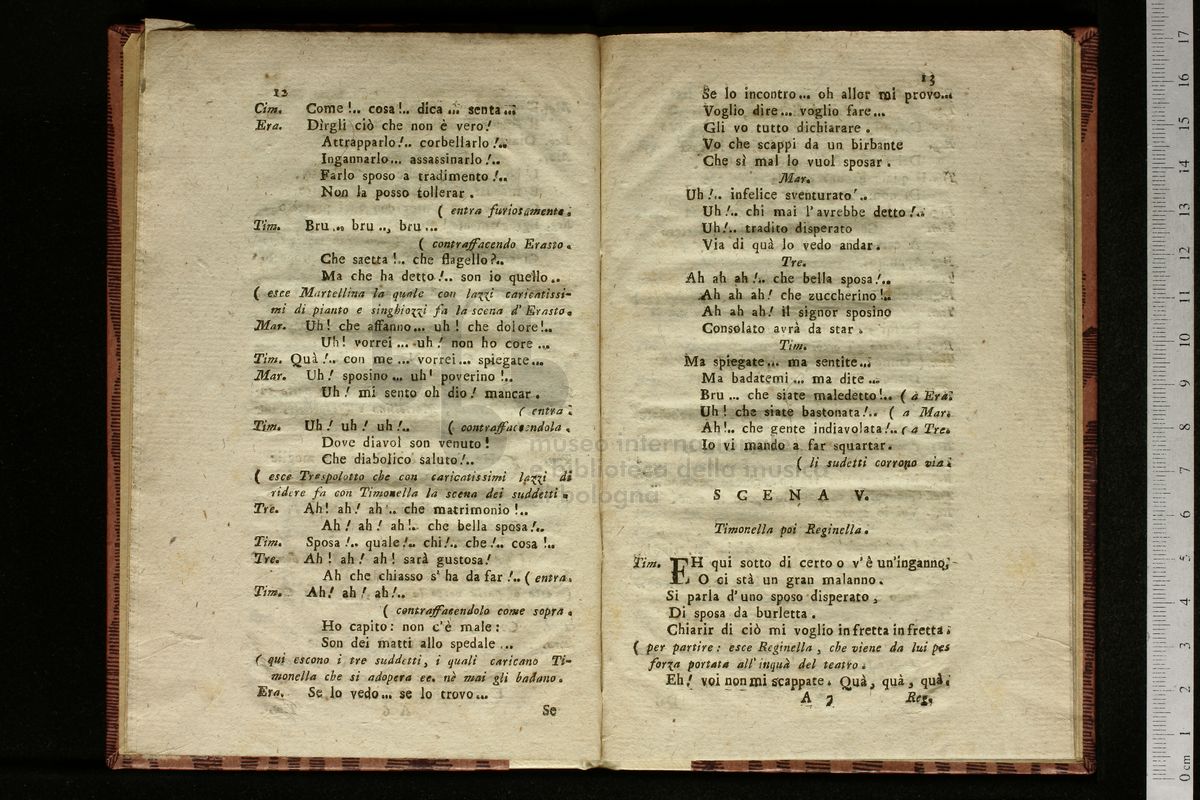 12
Cim. Come !.. cosa !.. dica ... senta ...
Era. Dirgli ciò che non è vero!
Attrapparlo!.. corbellarlo!..
Ingannarlo... assassinarlo!..
Farlo sposo a tradimento!..
Non la posso tollerar.
( entra furiosamente.
Tim. Bru... bru .., bru ...
( contraffacendo Erasto.
Che saetta!.. che flagello?..
Ma che ha detto!.. son io quello..
( esce Martellina la quale con lazzi caricatissi-
mi di pianto e singhiozzi fa la scena d'Erasto.
Mar. Uh! che affanno... uh! che dolore!..
Uh! vorrei ... uh! non ho core ...
Tim. Quà!.. con me ... vorrei... spiegate...
Mar. Uh! sposino ... uh! poverino!..
Uh! mi sento oh dio! mancar.
( entra.
Tim. Uh! uh! uh!.. ( contraffacendola.
Dove diavol son venuto!
Che diabolico saluto!..
( esce Trespolotto che con caricatissimi lazzi di
ridere fa con Timonella la scena dei suddetti.
Tre. Ah! ah! ah!.. che matrimonio!..
Ah! ah! ah!.. che bella sposa!..
Tim. Sposa!.. quale!.. chi!.. che!.. cosa!..
Tre. Ah! ah! ah! sarà gustosa!
Ah che chiasso s'ha da far!.. ( entra.
Tim. Ah! ah! ah!..
( contraffacendolo come sopra.
Ho capito: non c'è male:
Son dei matti allo spedale ...
( qui escono i tre suddetti, i quali caricano Ti-
monella che si adopera ec. nè mai gli badano.
Era. Se lo vedo... se lo trovo...
Se
13
Se lo incontro... oh allor mi provo...
Voglio dire... voglio fare...
Gli vo tutto dichiarare.
Vo che scappi da un birbante
Che sì mal lo vuol sposar.
Mar.
Uh!.. infelice sventurato!..
Uh!.. chi mai l'avrebbe detto!..
Uh!.. tradito disperato
Via di quà lo vedo andar.
Tre.
Ah ah ah!.. che bella sposa!..
Ah ah ah! che zuccherino!..
Ah ah ah! il signor sposino
Consolato avrà da star.
Tim.
Ma spiegate... ma sentite...
Ma badatemi ... ma dite ...
Bru ... che siate maledetto!.. ( a Era.
Uh! che siate bastonata!.. ( a Mar.
Ah!.. che gente indiavolata!.. ( a Tre.
Io vi mando a far squartar.
( li sudetti corrono via.
SCENA V.
Timonella poi Reginella.
Tim. EH qui sotto di certo o v'è un'inganno,
O ci stà un gran malanno.
Si parla d'uno sposo disperato,
Di sposa da burletta.
Chiarir di ciò mi voglio in fretta in fretta.
( per partire: esce Reginella, che viene da lui per
forza portata all'inquà del teatro.
Eh! voi non mi scappate. Quà, quà, quà.
A 7
Reg.
museo internazionale
e biblioteca della musica
bologna